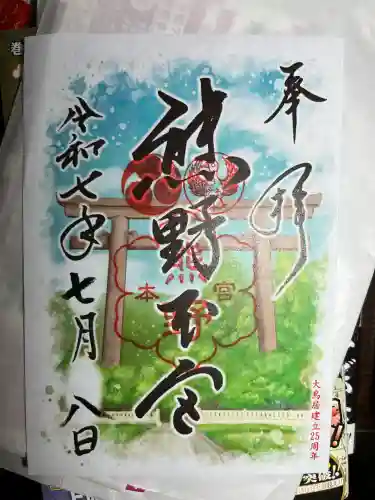 奉拝
熊野本宮
熊野
本 宮
令和七年七月八日
大鳥居建立25周年
突破!!